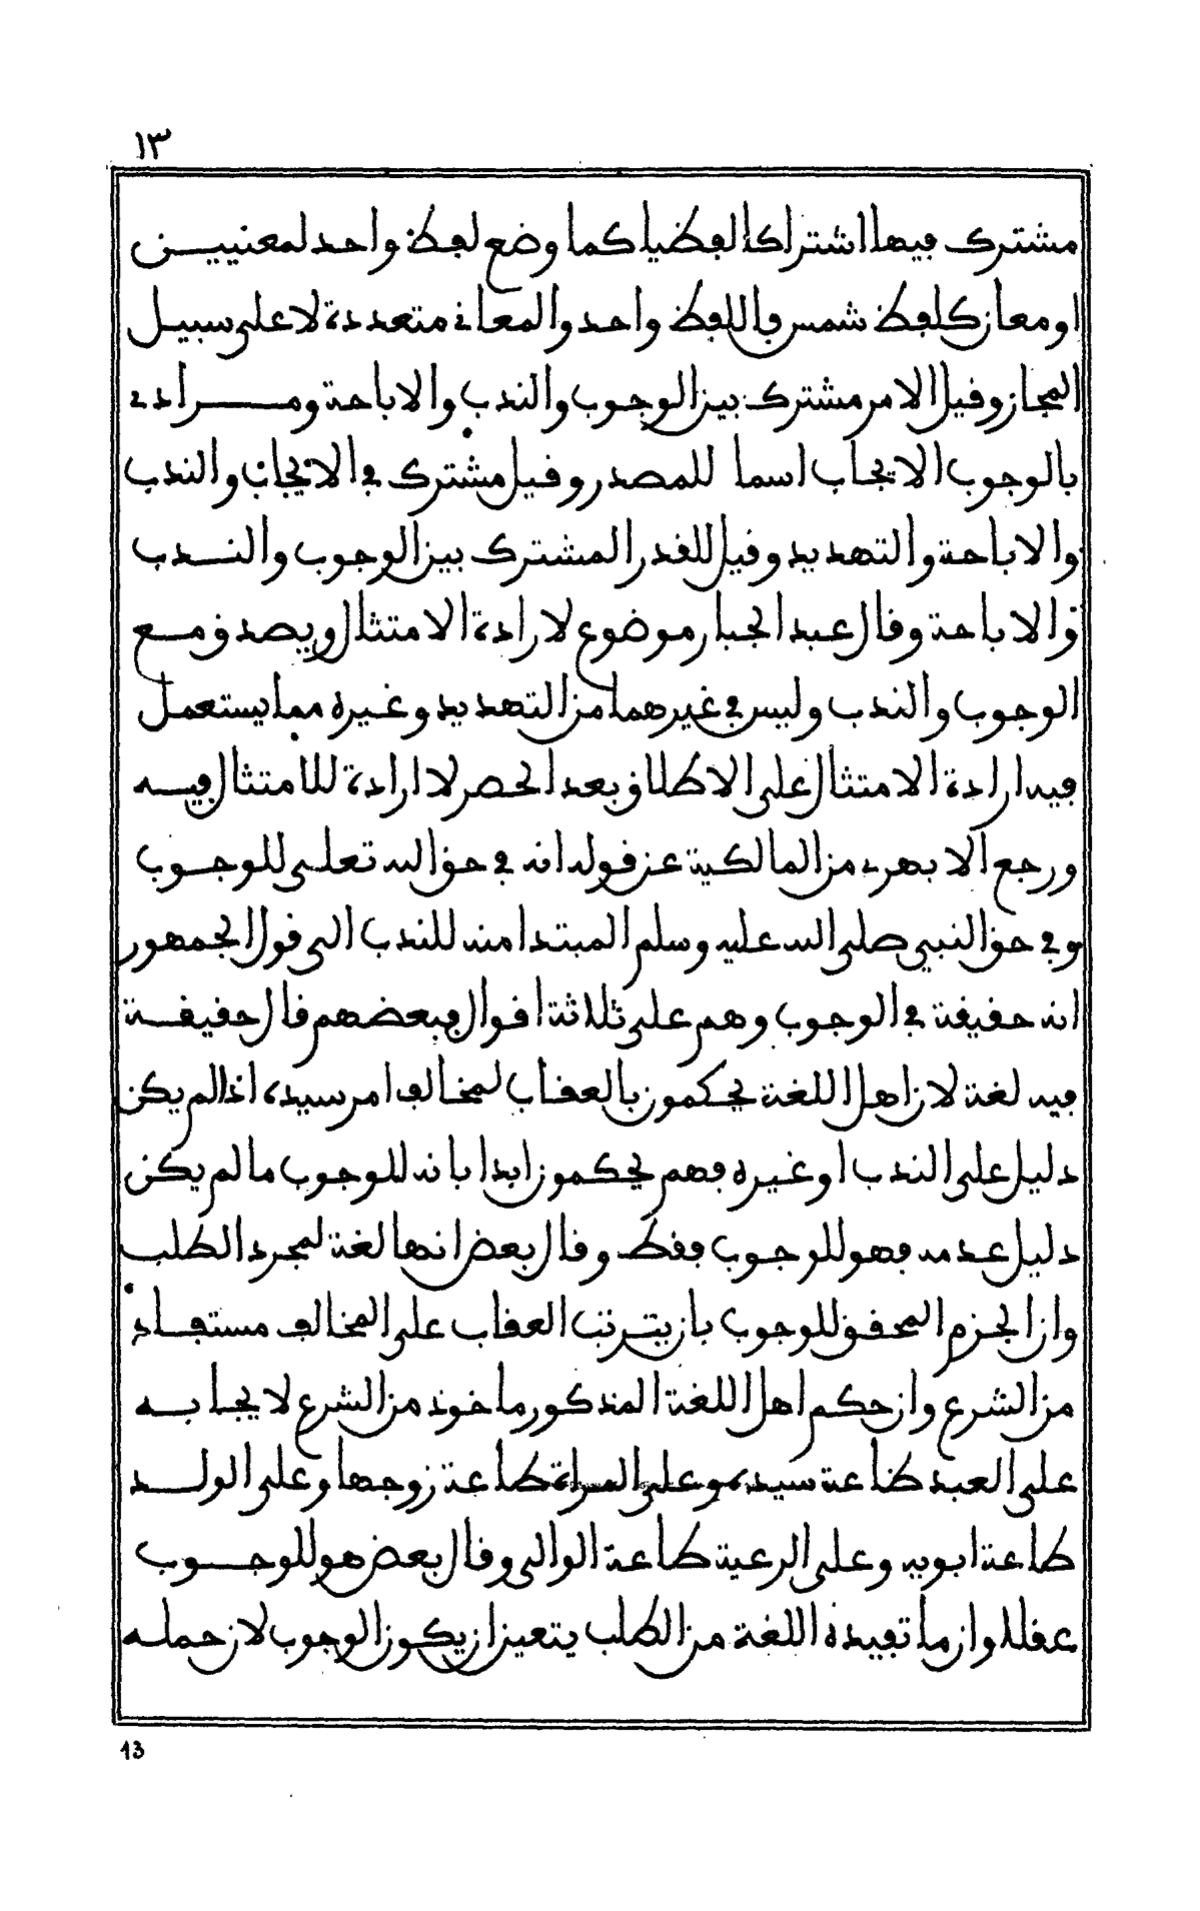 ١٣
مشترك فيها اشتراكا لفظيا كما وضع لفظ واحد لمعنيين
او معان كلفظ شمس فاللفظ واحد والمعانى متعددة لا على سبيل
المجاز وقيل الامر مشترك بين الوجوب والندب والاباحة ومرادى
بالوجوب الايجاب اسما للمصدر وقيل مشترك فى الايجاب والندب
والاباحة والتهديد وقيل للقدر المشترك بين الوجوب والندب
والاباحة وقال عبد الجبار موضوع لارادة الامتثال ويصدق مع
الوجوب والندب وليس فى غيرهما من التهديد وغيره مما يستعمل
فيه ارادة الامتثال على الاطلاق بعد الحصر لا ارادة للامتثال فيه
ورجع الابهرى من المالكية عن قوله انه فى حق الله تعلى للوجوب
وفى حق النبي صلى الله عليه وسلم المبتدا منه للندب الى قول الجمهور
انه حقيقة فى الوجوب وهم على ثلاثة اقوال فبعضهم قال حقيقة
فيه لغة لان اهل اللغة يحكمون بالعقاب لمخالف امر سيده اذا لم يكن
دليل على الندب او غيره فهم يحكمون ابدا بانه للوجوب ما لم يكن
دليل عدمه فهو للوجوب فقط وقال بعض انها لغة لمجرد الطلب
وان الجزم المحقق للوجوب بان يترتب العقاب على المخالف مستفاد
من الشرع وان حكم اهل اللغة المذكور ماخوذ من الشرع لايجابه
على العبد طاعة سيده وعلى المراة طاعة زوجها وعلى الولد
طاعة ابويه وعلى الرعية طاعة الوالى وقال بعض هو للوجوب
عقلا وان ما تفيده اللغة من الطلب يتعين ان يكون الوجوب لان حمله
13